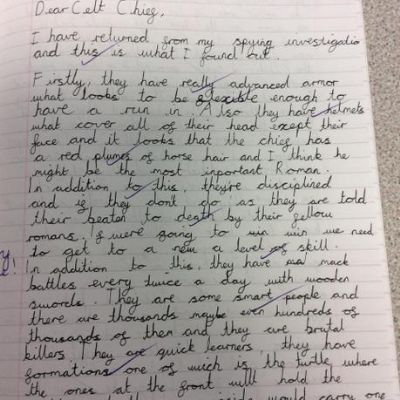 Dear Celt Chief,
I have returned from my spying investigatio
and this is what I found out.
Firstly, they have really advanced armor
what looks to be flexible enough to
have a run in. Also they have helmets
what cover all of their head except their
face and it looks that the chief has
a red plumes of horse hair and I think he
might be the most inportant Roman.
In addition to this, theyre disciplined
and if they dont do as they are told
their beaten to death by their fellow
romans. If were going to win we need
to get to a new a level of skill.
In addition to this, they have mack
battles every twice a day with wooden
swords. They are some smart people and
there are thousands maybe even hundreds of
thousands of them and they are brutal
killers. They are quick learners, they have
formations one of wich is the turtle where
the ones at the front will hold the
would carry one